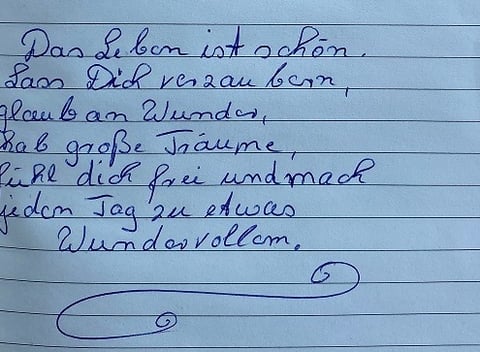 Das Leben ist schön.
Lass Dich verzaubern,
glaub an Wunder,
hab große Träume,
fühl dich frei und mach
jeden Tag zu etwas
Wundervollem.